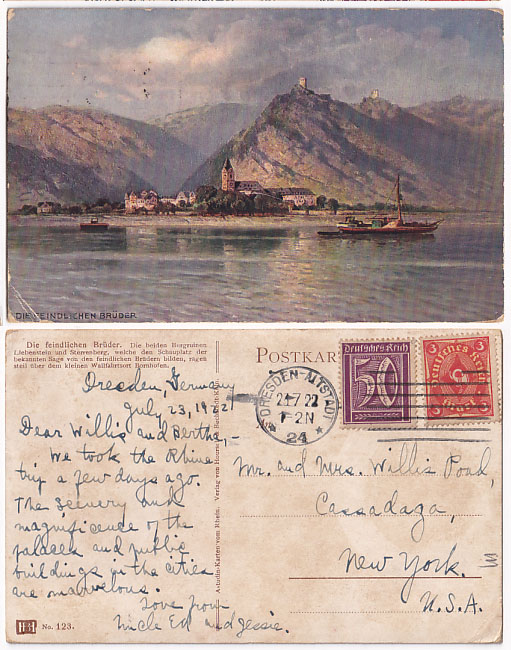 DIE FEINDLICHEN BRÜDER.
Die feindlichen Brüder. Die beiden Burgruinen
Liebenstein und Sterrenberg, welche den Schauplatz der
bekannten Sage von den feindlichen Brüdern bilden, ragen
steil über dem kleinen Wallfahrtsort Bornhofen.
POSTKAR
Deutsches Reich
50
3 3
Deutsches Reich
DRESDEN-ALTSTADT
7 22
1-2N
24
Dresden, Germany
July 23, 1922
Dear Willis and Bertha,-
We took the Rhine
trip a few days ago.
The scenery and
magnificence of the
palaces and public
buildings in the cities
are marvelous.
Love from
Uncle Ed and Jessie.
Mr. and Mrs. Willis Pood,
Cassadaga,
New York.
U.S.A.
Astudin-Karten vom Rhein. Verlag von
No. 123.